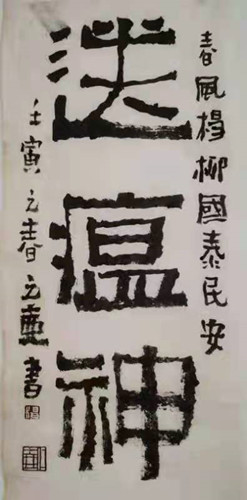 春風楊柳國泰民安
送瘟神
壬寅之春之
書